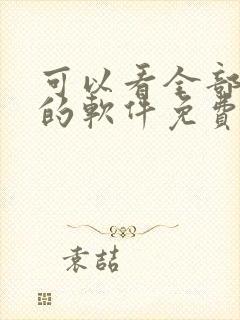 可以看全部
的軟件免費
袁喆